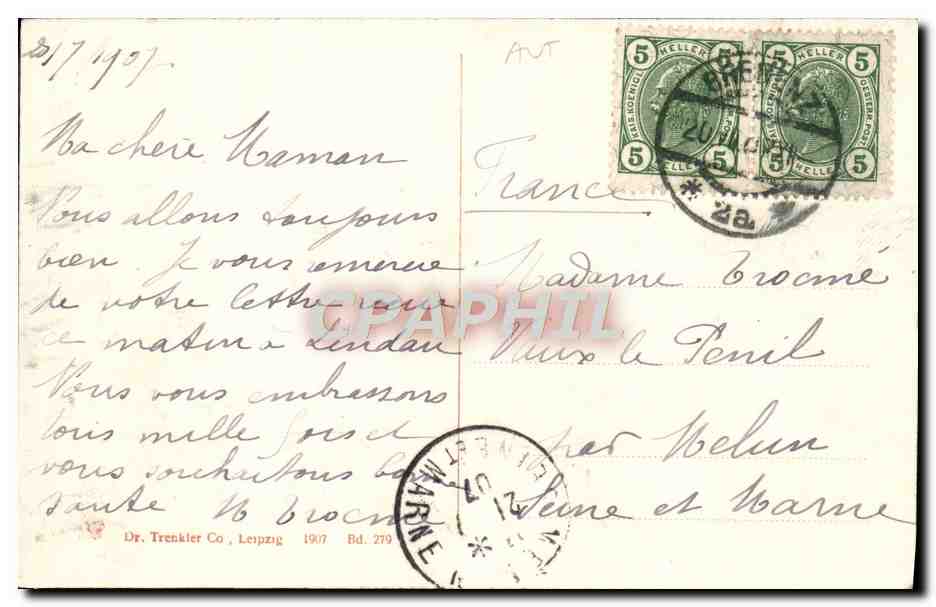 20/7/1907
AUT
Ma chère Maman
Nous allons toujours
bien. Je vous remercie
de votre lettre reçue
ce matin à Lindau
Nous vous embrassons
tous mille fois et
vous souhaitons bonne
santé M Trocmé
France
Madame Trocmé
Vaux le Penil
par Melun
Seine et Marne
5 HELLER 5
KAIS. KOENIGL. OESTERR. POST.
5 HELLER 5
5 HELLER 5
KAIS. KOENIGL. OESTERR. POST.
5 HELLER 5
BREGENZ
20
* 2a
SEINE ET MARNE
21
07
CPAPHIL
Dr. Trenkler Co., Leipzig 1907 Bd. 279